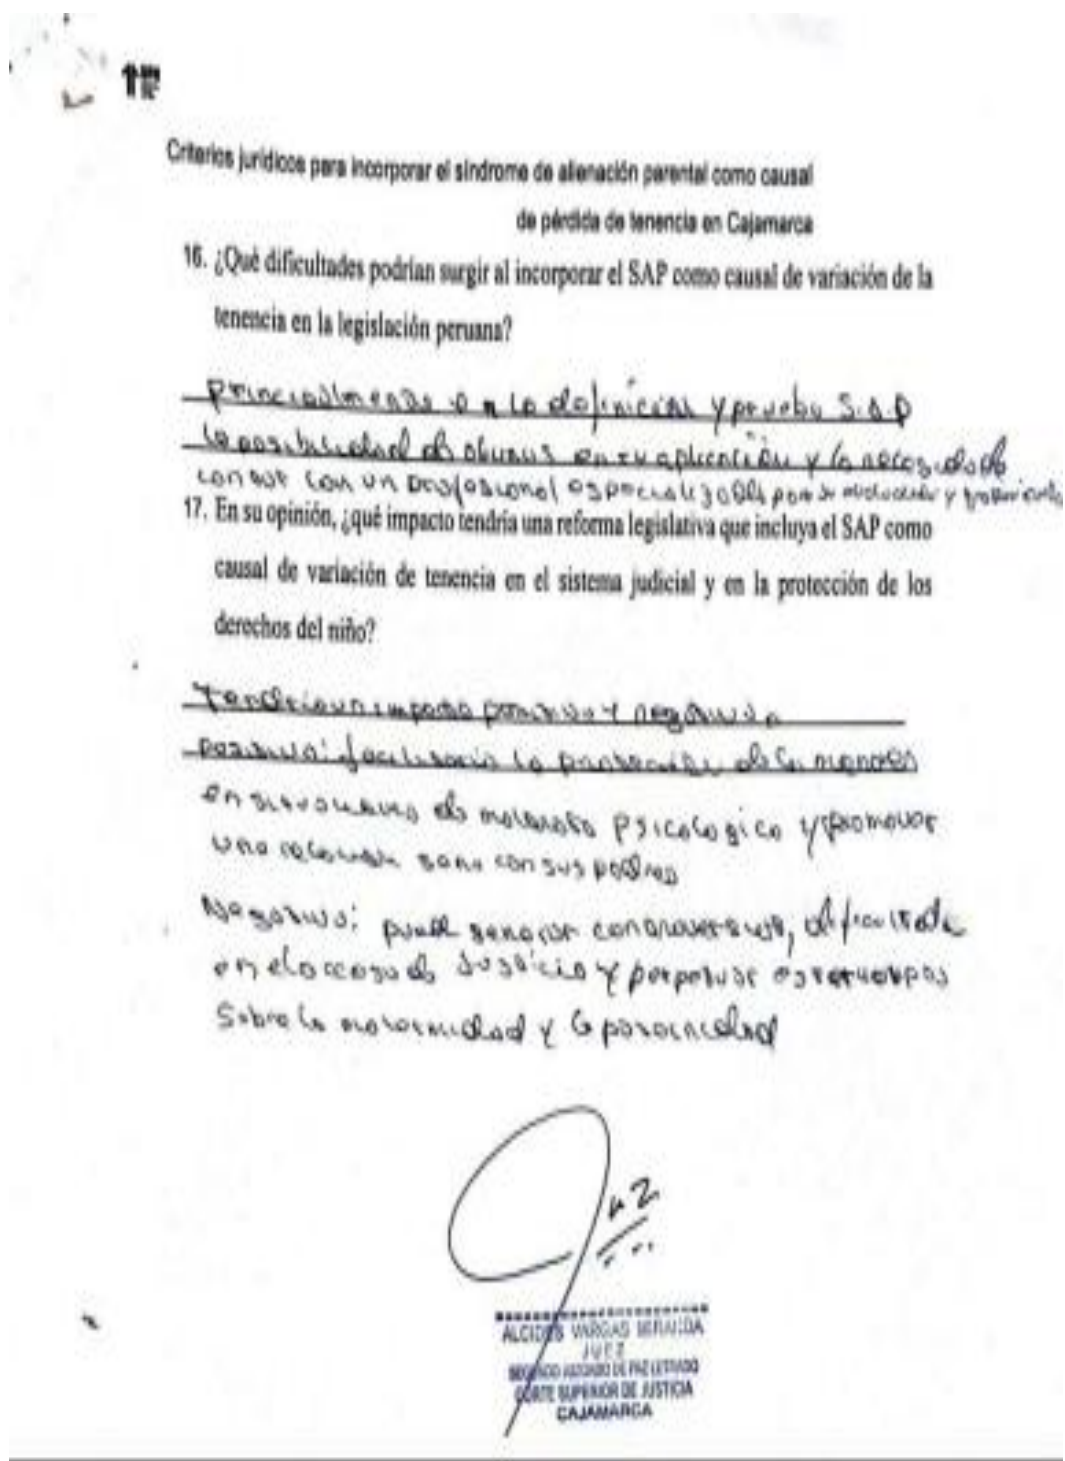 Criterios jurídicos para incorporar el síndrome de alienación parental como causal
de pérdida de tenencia en Cajamarca
16. ¿Qué dificultades podrían surgir al incorporar el SAP como causal de variación de la
tenencia en la legislación peruana?
principalmente en la definición y prueba S.A.P
la posibilidad de abusos en su aplicación y la necesidad de
contar con un profesional especializado para su evaluación y
17. En su opinión, ¿qué impacto tendría una reforma legislativa que incluya el SAP como
causal de variación de tenencia en el sistema judicial y en la protección de los
derechos del niño?
Tendria un impacto positivo y negativo
positivo: facilitaria la protección de los menores
en situaciones de maltrato psicologico y promover
una relación sana con sus padres
Negativo: puede generar controversias, dificultade
en el acceso de Justicia y perpetuar estereotipos
Sobre la maternidad y la paternidad
ALCIDES VARGAS
JUEZ
SEGUNDO JUZGADO DE PAZ LETRADO
CORTE SUPERIOR DE JUSTICIA
CAJAMARCA